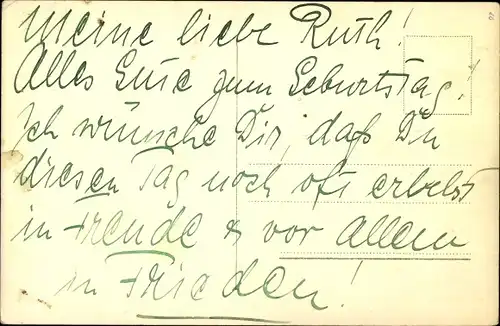 Meine liebe Ruth!
Alles Gute zum Geburtstag!
Ich wünsche Dir, daß Du
diesen Tag noch oft erlebst
in Freude & vor allem
in Frieden!